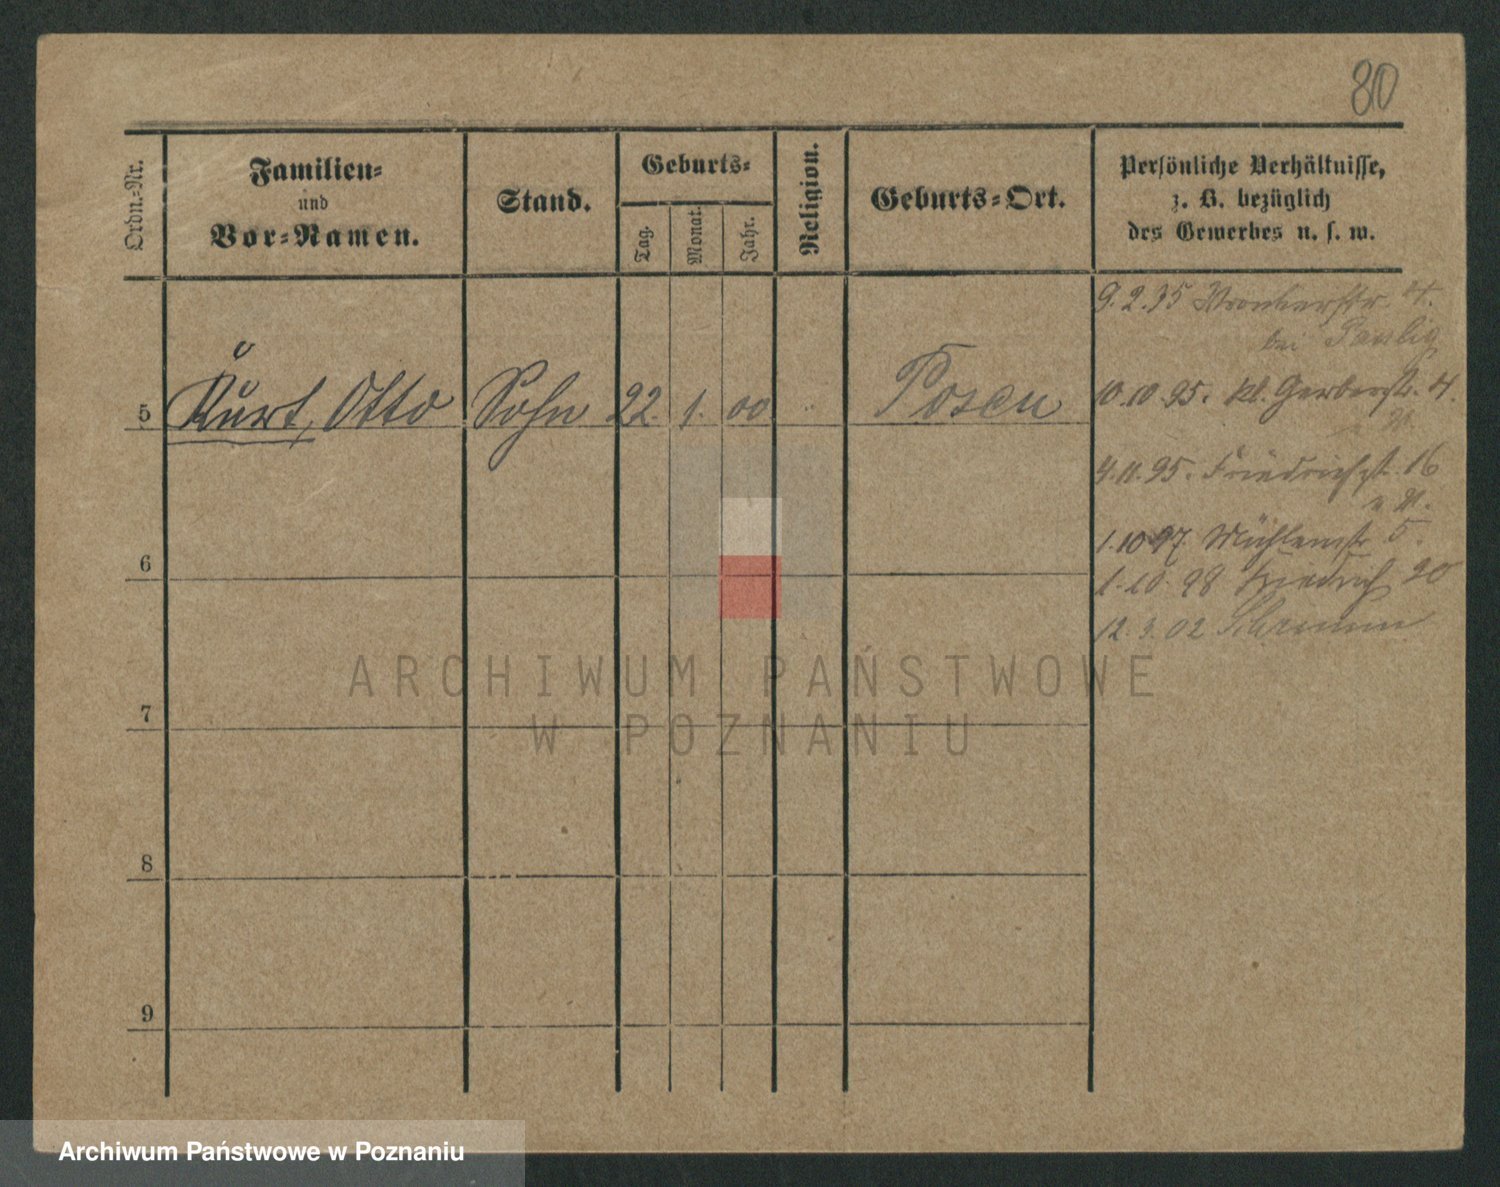 80
Ordn.-Nr.
Familien-
und
Vor-Namen.
Stand.
Geburts-
Tag.
Monat.
Jahr.
Religion.
Geburts-Ort.
Persönliche Verhältnisse,
z. B. bezüglich
des Gewerbes u. s. w.
9.2.95 Wronkerstr. 4.
bei Paulig
5 Kurt, Otto Sohn 22. 1. 00 " Posen
10.10.95. kl. Gerberstr. 4.
4.11.95. Friedrichst. 16
1.10.97 Mühlenstr 5.
6
1.10.98 Friedrich 20
12.3.02 Schrimm
7
8
9
ARCHIWUM PAŃSTWOWE
W POZNANIU
Archiwum Państwowe w Poznaniu